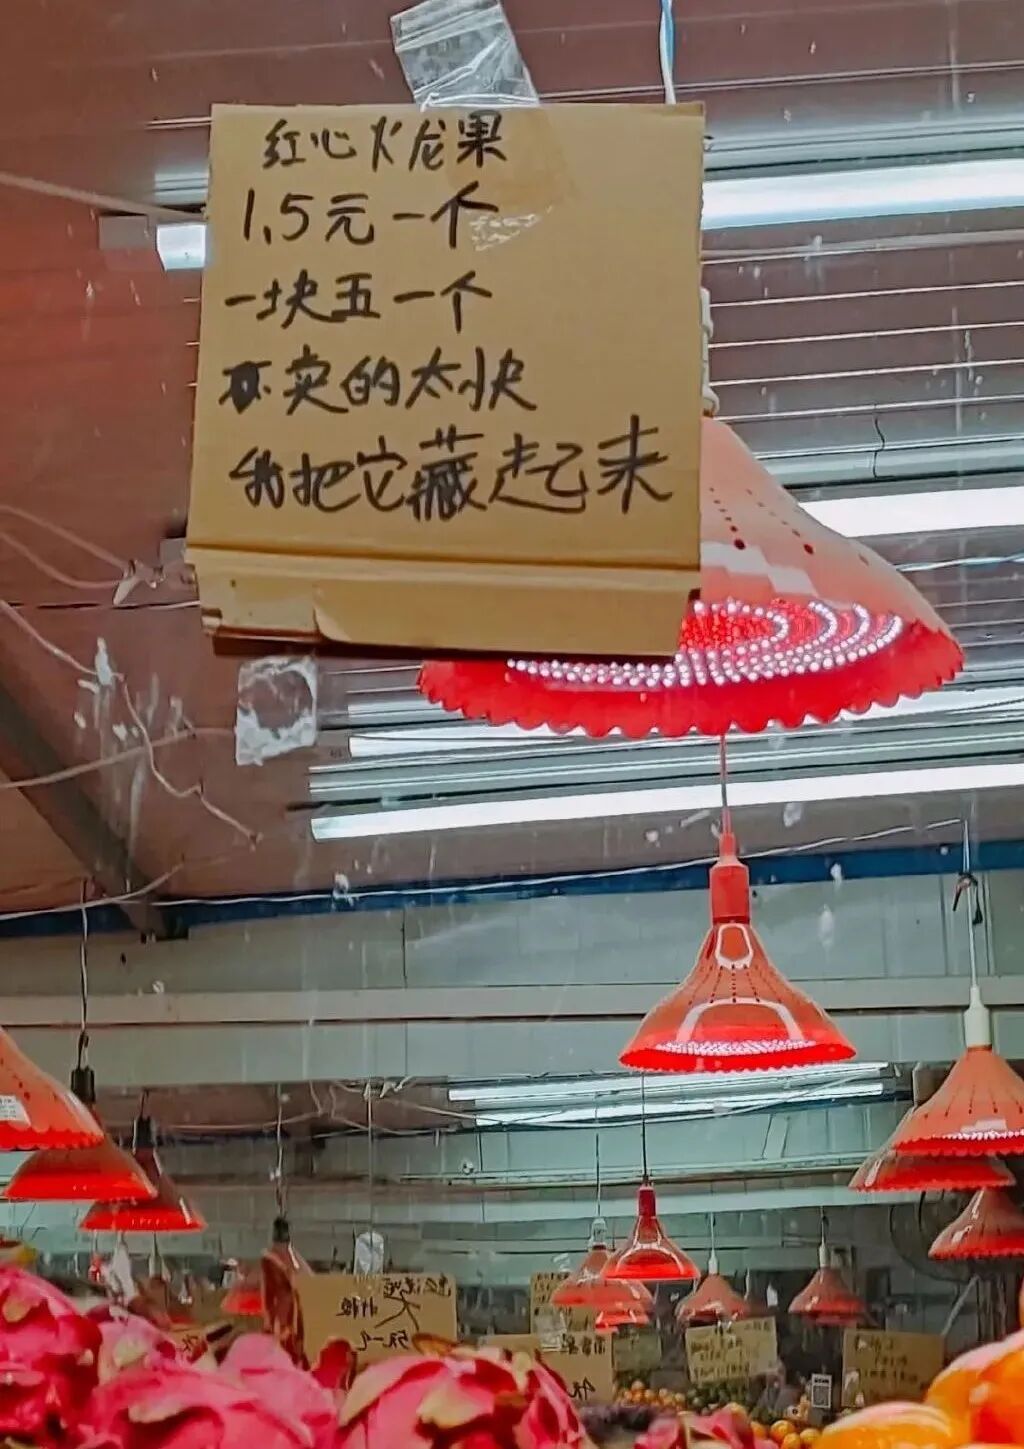 红心火龙果
1.5元一个
一块五一个
不卖的太快
我把它藏起来